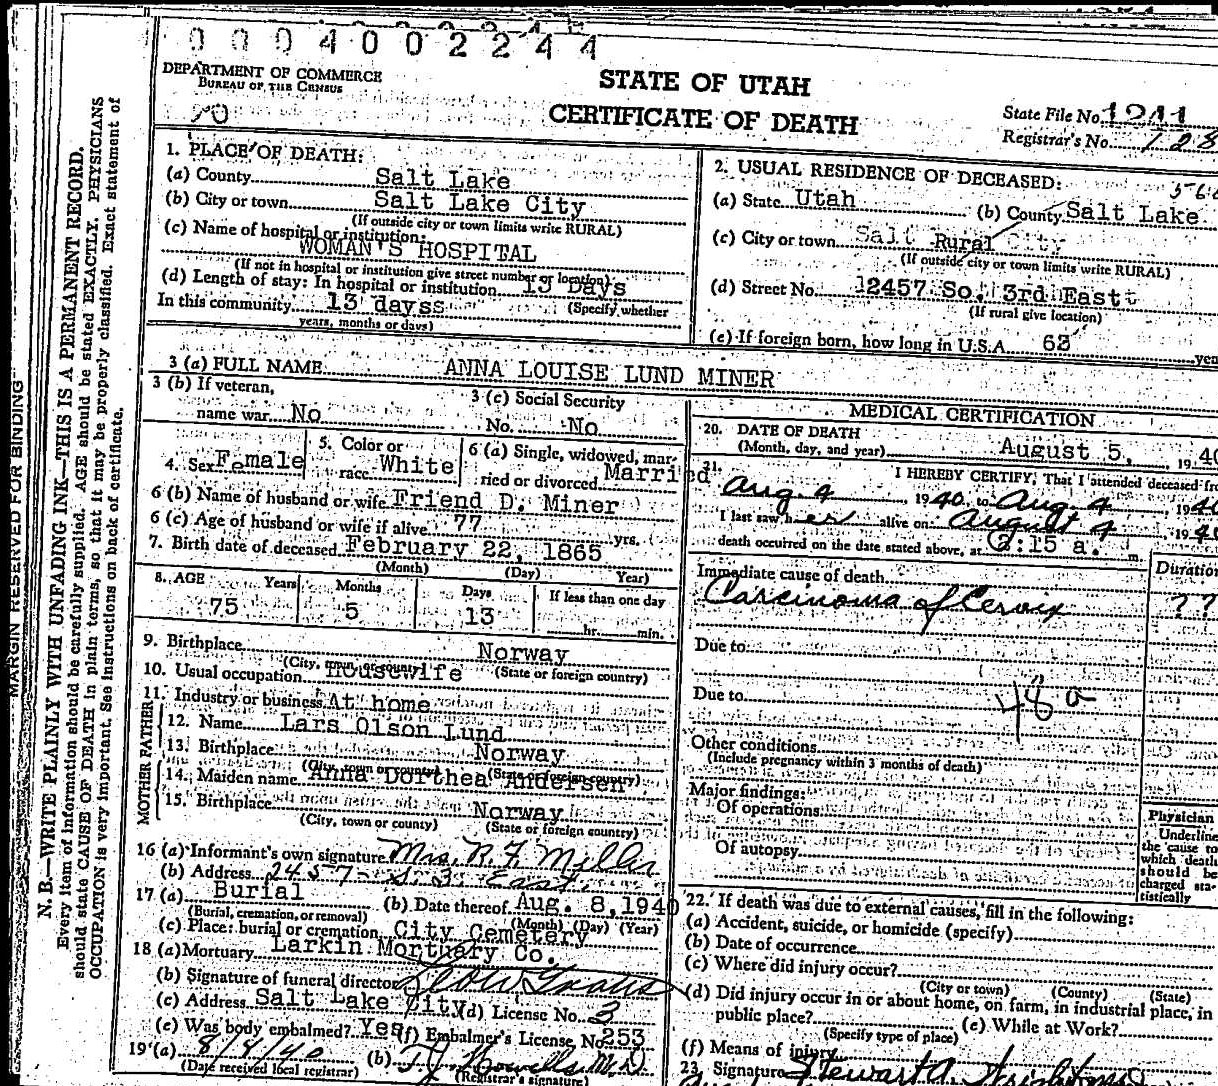 0 0 0 4 0 0 2 2 4 4
DEPARTMENT OF COMMERCE
BUREAU OF THE CENSUS
STATE OF UTAH
CERTIFICATE OF DEATH
State File No. 1211
Registrar's No. 128
1. PLACE OF DEATH:
(a) County Salt Lake
(b) City or town Salt Lake City
(If outside city or town limits write RURAL)
(c) Name of hospital or institution:
WOMAN'S HOSPITAL
(If not in hospital or institution give street number or location)
(d) Length of stay: In hospital or institution 13 Days
(Specify whether
In this community 13 dayss
years, months or days)
2. USUAL RESIDENCE OF DECEASED:
(a) State Utah (b) County Salt Lake
(c) City or town Salt Rural City
(If outside city or town limits write RURAL)
(d) Street No. 2457 So. 3rd East
(If rural give location)
(e) If foreign born, how long in U.S.A. 63 years
3 (a) FULL NAME ANNA LOUISE LUND MINER
3 (b) If veteran,
name war No
3 (c) Social Security
No. No
4. Sex Female
5. Color or
race White
6 (a) Single, widowed, mar-
ried or divorced Married
6 (b) Name of husband or wife Friend D. Miner
6 (c) Age of husband or wife if alive 77 yrs.
7. Birth date of deceased February 22, 1865
(Month) (Day) Year)
8. AGE Years Months Days If less than one day
75 5 13 hr. min.
9. Birthplace Norway
(City, town, or county) (State or foreign country)
10. Usual occupation Housewife
11. Industry or business At home
FATHER
12. Name Lars Olson Lund
13. Birthplace Norway
(City, town or county) (State or foreign country)
MOTHER
14. Maiden name Anna Dorthea Andersen
15. Birthplace Norway
(City, town or county) (State or foreign country)
16 (a) Informant's own signature Mrs. R. F. Miller
(b) Address 2457 S. 3. East.
17 (a) Burial (b) Date thereof Aug. 8, 1940
(Burial, cremation, or removal) (Month) (Day) (Year)
(c) Place: burial or cremation City Cemetery
18 (a) Mortuary Larkin Mortuary Co.
(b) Signature of funeral director
(c) Address Salt Lake City (d) License No. 3
(e) Was body embalmed? Yes (f) Embalmer's License, No. 253
19 (a) 8/8/40 (b) T. J. Howells M.D.
(Date received local registrar) (Registrar's signature)
MEDICAL CERTIFICATION
20. DATE OF DEATH
(Month, day, and year) August 5, 1940
21. I HEREBY CERTIFY, That I attended deceased fro
Aug. 4 1940 to Aug. 4, 1940
I last saw her alive on August 4 1940
death occurred on the date stated above, at 2:15 a. m.
Immediate cause of death Duration
Carcinoma of Cervix ??
Due to
Due to
48 a
Other conditions
(Include pregnancy within 3 months of death)
Major findings:
Of operations
Of autopsy
Physician
Underline
the cause to
which death
should be
charged sta-
tistically
22. If death was due to external causes, fill in the following:
(a) Accident, suicide, or homicide (specify)
(b) Date of occurrence
(c) Where did injury occur?
(City or town) (County) (State)
(d) Did injury occur in or about home, on farm, in industrial place, in
public place? (e) While at Work?
(Specify type of place)
(f) Means of injury
23. Signature Stewart A. Wright M.D.
MARGIN RESERVED FOR BINDING
N. B.—WRITE PLAINLY WITH UNFADING INK—THIS IS A PERMANENT RECORD.
Every item of information should be carefully supplied. AGE should be stated EXACTLY. PHYSICIANS
should state CAUSE OF DEATH in plain terms, so that it may be properly classified. Exact statement of
OCCUPATION is very important. See instructions on back of certificate.